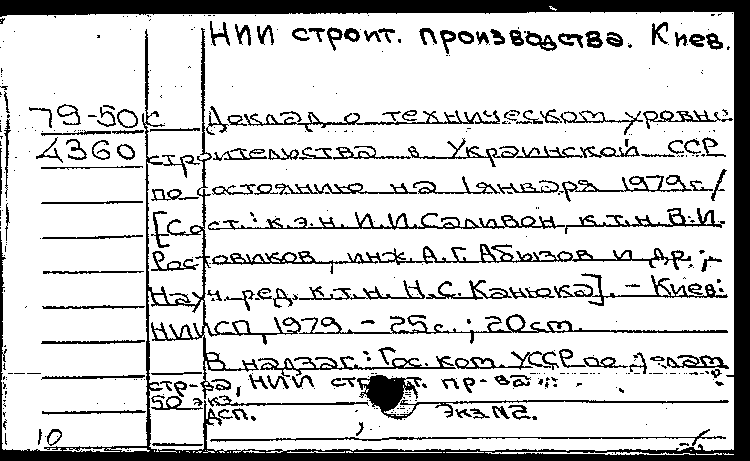 НИИ строит. производства. Киев.
79-50к Доклад о техническом уровне
4360 строительства в Украинской ССР
по состоянию на 1 января 1979 г. /
[Сост.: к.э.н. И.И. Саливон, к.т.н. В.И.
Ростовиков, инж. А.Г. Абызов и др.;
Науч. ред. к.т.н. Н.С. Канюка]. - Киев:
НИИСП, 1979. - 25 с.; 20 см.
В надзаг.: Гос. ком. УССР по делам
стр-ва, НИИ строит. пр-ва
50 экз.
ДСП. Экз №2.
10